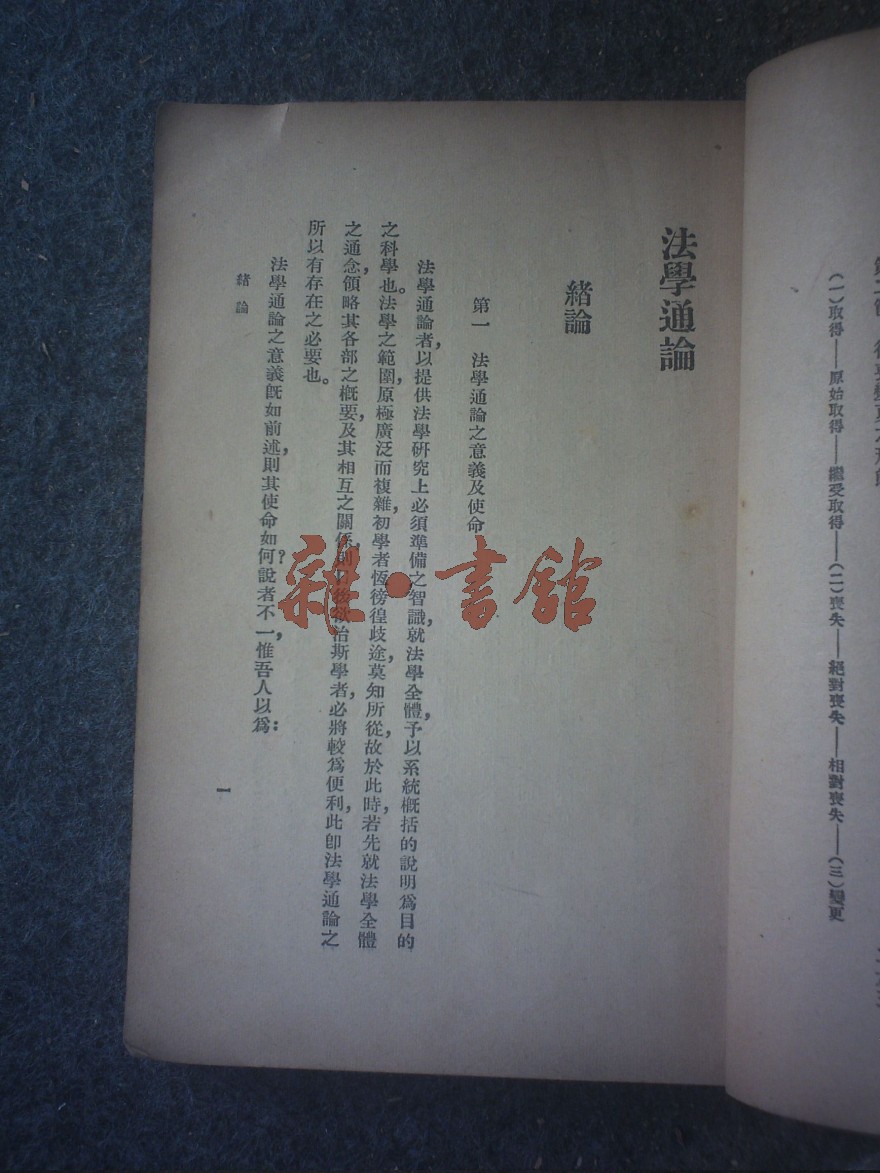 (一)取得——原始取得——繼受取得——(二)喪失——絕對喪失——相對喪失——(三)變更
法學通論
緒論
第一 法學通論之意義及使命
法學通論者,以提供法學研究上必須準備之智識,就法學全體,予以系統概括的說明爲目的
之科學也。法學之範圍,原極廣泛而複雜,初學者恆徬徨歧途,莫知所從,故於此時若先就法學全體
之通念,領略其各部之概要,及其相互之關係,則日後欲治斯學者,必將較爲便利,此卽法學通論之
所以有存在之必要也。
法學通論之意義旣如前述,則其使命如何?說者不一,惟吾人以爲:
緒論
一
雜·書館